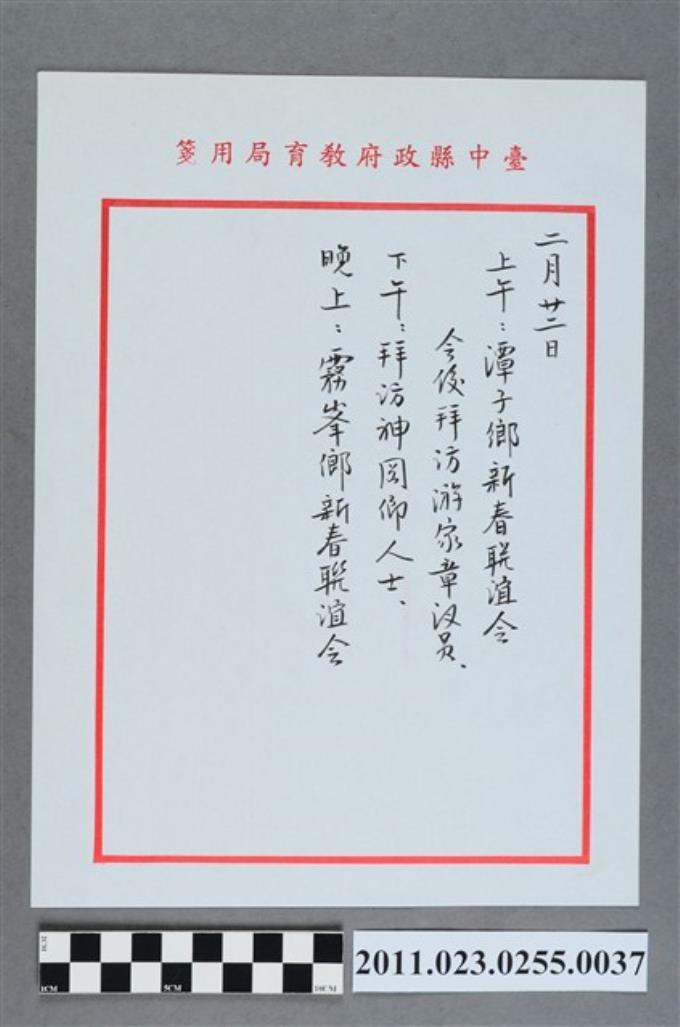 臺中縣政府教育局用箋
二月廿二日
上午：潭子鄉新春联誼会
会後拜访游家章议员、
下午：拜访神岡鄉人士、
晚上：霧峯鄉新春聯誼会
1CM 5CM 10CM
2011.023.0255.0037